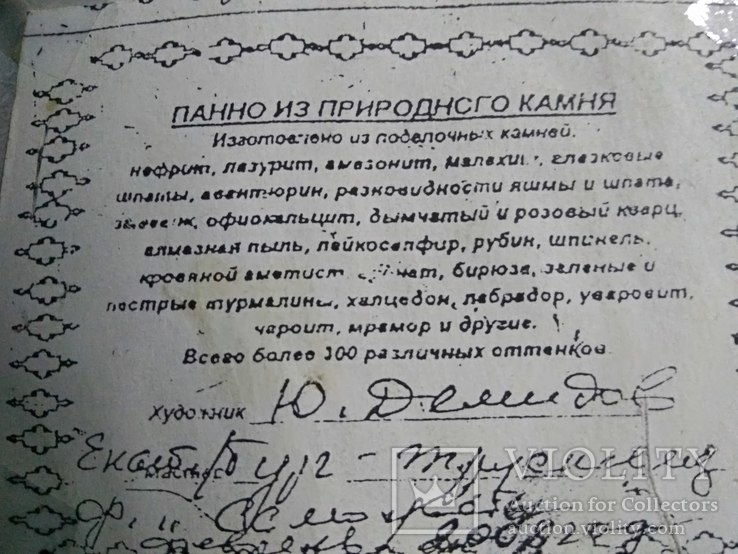 ПАННО ИЗ ПРИРОДНОГО КАМНЯ
Изготовлено из поделочных камней.
нефрит, лазурит, амазонит, малахит, глазковые
шпаты, авантюрин, разновидности яшмы и шпата,
офиокальцит, дымчатый и розовый кварц,
алмазная пыль, лейкосапфир, рубин, шпинель.
кровяной аметист, бирюза, зеленые и
пестрые турмалины, халцедон, лабрадор, уваровит,
чароит, мрамор и другие.
Всего более 300 различных оттенков
Художник Ю. Демидов
Екат.бург
VIOLITY
Auction for Collectors
auction.violity.com